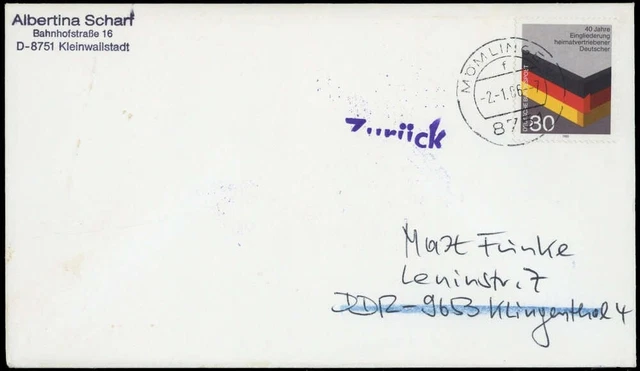 Albertina Scharf
Bahnhofstraße 16
D-8751 Kleinwallstadt
40 Jahre
Eingliederung
heimatvertriebener
Deutscher
DEUTSCHE BUNDESPOST
80
MÖMLINGEN
f
-2.-1.86-7
87
Zurück
Max Funke
Leninstr. 7
DDR-9653 Klingenthal 4